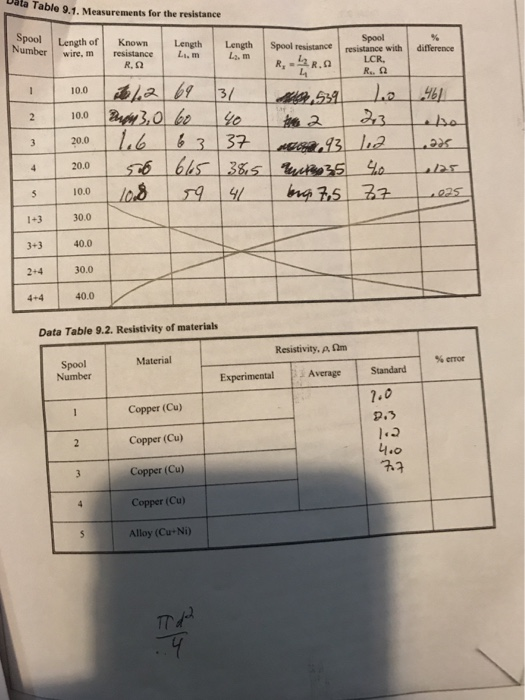 Data Table 9.1. Measurements for the resistance
Spool Number | Length of wire, m | Known resistance R, Ω | Length L₁, m | Length L₂, m | Spool resistance Rₓ = L₂/L₁ R, Ω | Spool resistance with LCR, Rₓ, Ω | % difference
1 | 10.0 | 1.2 | 69 | 31 | .539 | 1.0 | .461
2 | 10.0 | 3.0 | 60 | 40 | 2 | 2.3 | .130
3 | 20.0 | 1.6 | 63 | 37 | .93 | 1.2 | .225
4 | 20.0 | 5.6 | 61.5 | 38.5 | 3.5 | 4.0 | .125
5 | 10.0 | 10.8 | 59 | 41 | 7.5 | 7.7 | .025
1+3 | 30.0
3+3 | 40.0
2+4 | 30.0
4+4 | 40.0
Data Table 9.2. Resistivity of materials
Spool Number | Material | Resistivity, ρ, Ωm | % error
Experimental | Average | Standard
1 | Copper (Cu)
2 | Copper (Cu)
3 | Copper (Cu)
4 | Copper (Cu)
5 | Alloy (Cu+Ni)
2.3
1.2
4.0
7.7
πd²
4